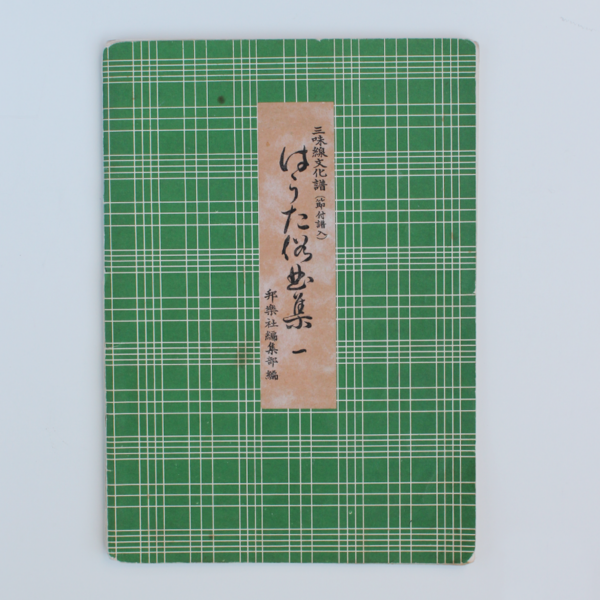 三味線文化譜（節付譜入）
はうた俗曲集 一
邦楽社編集部編